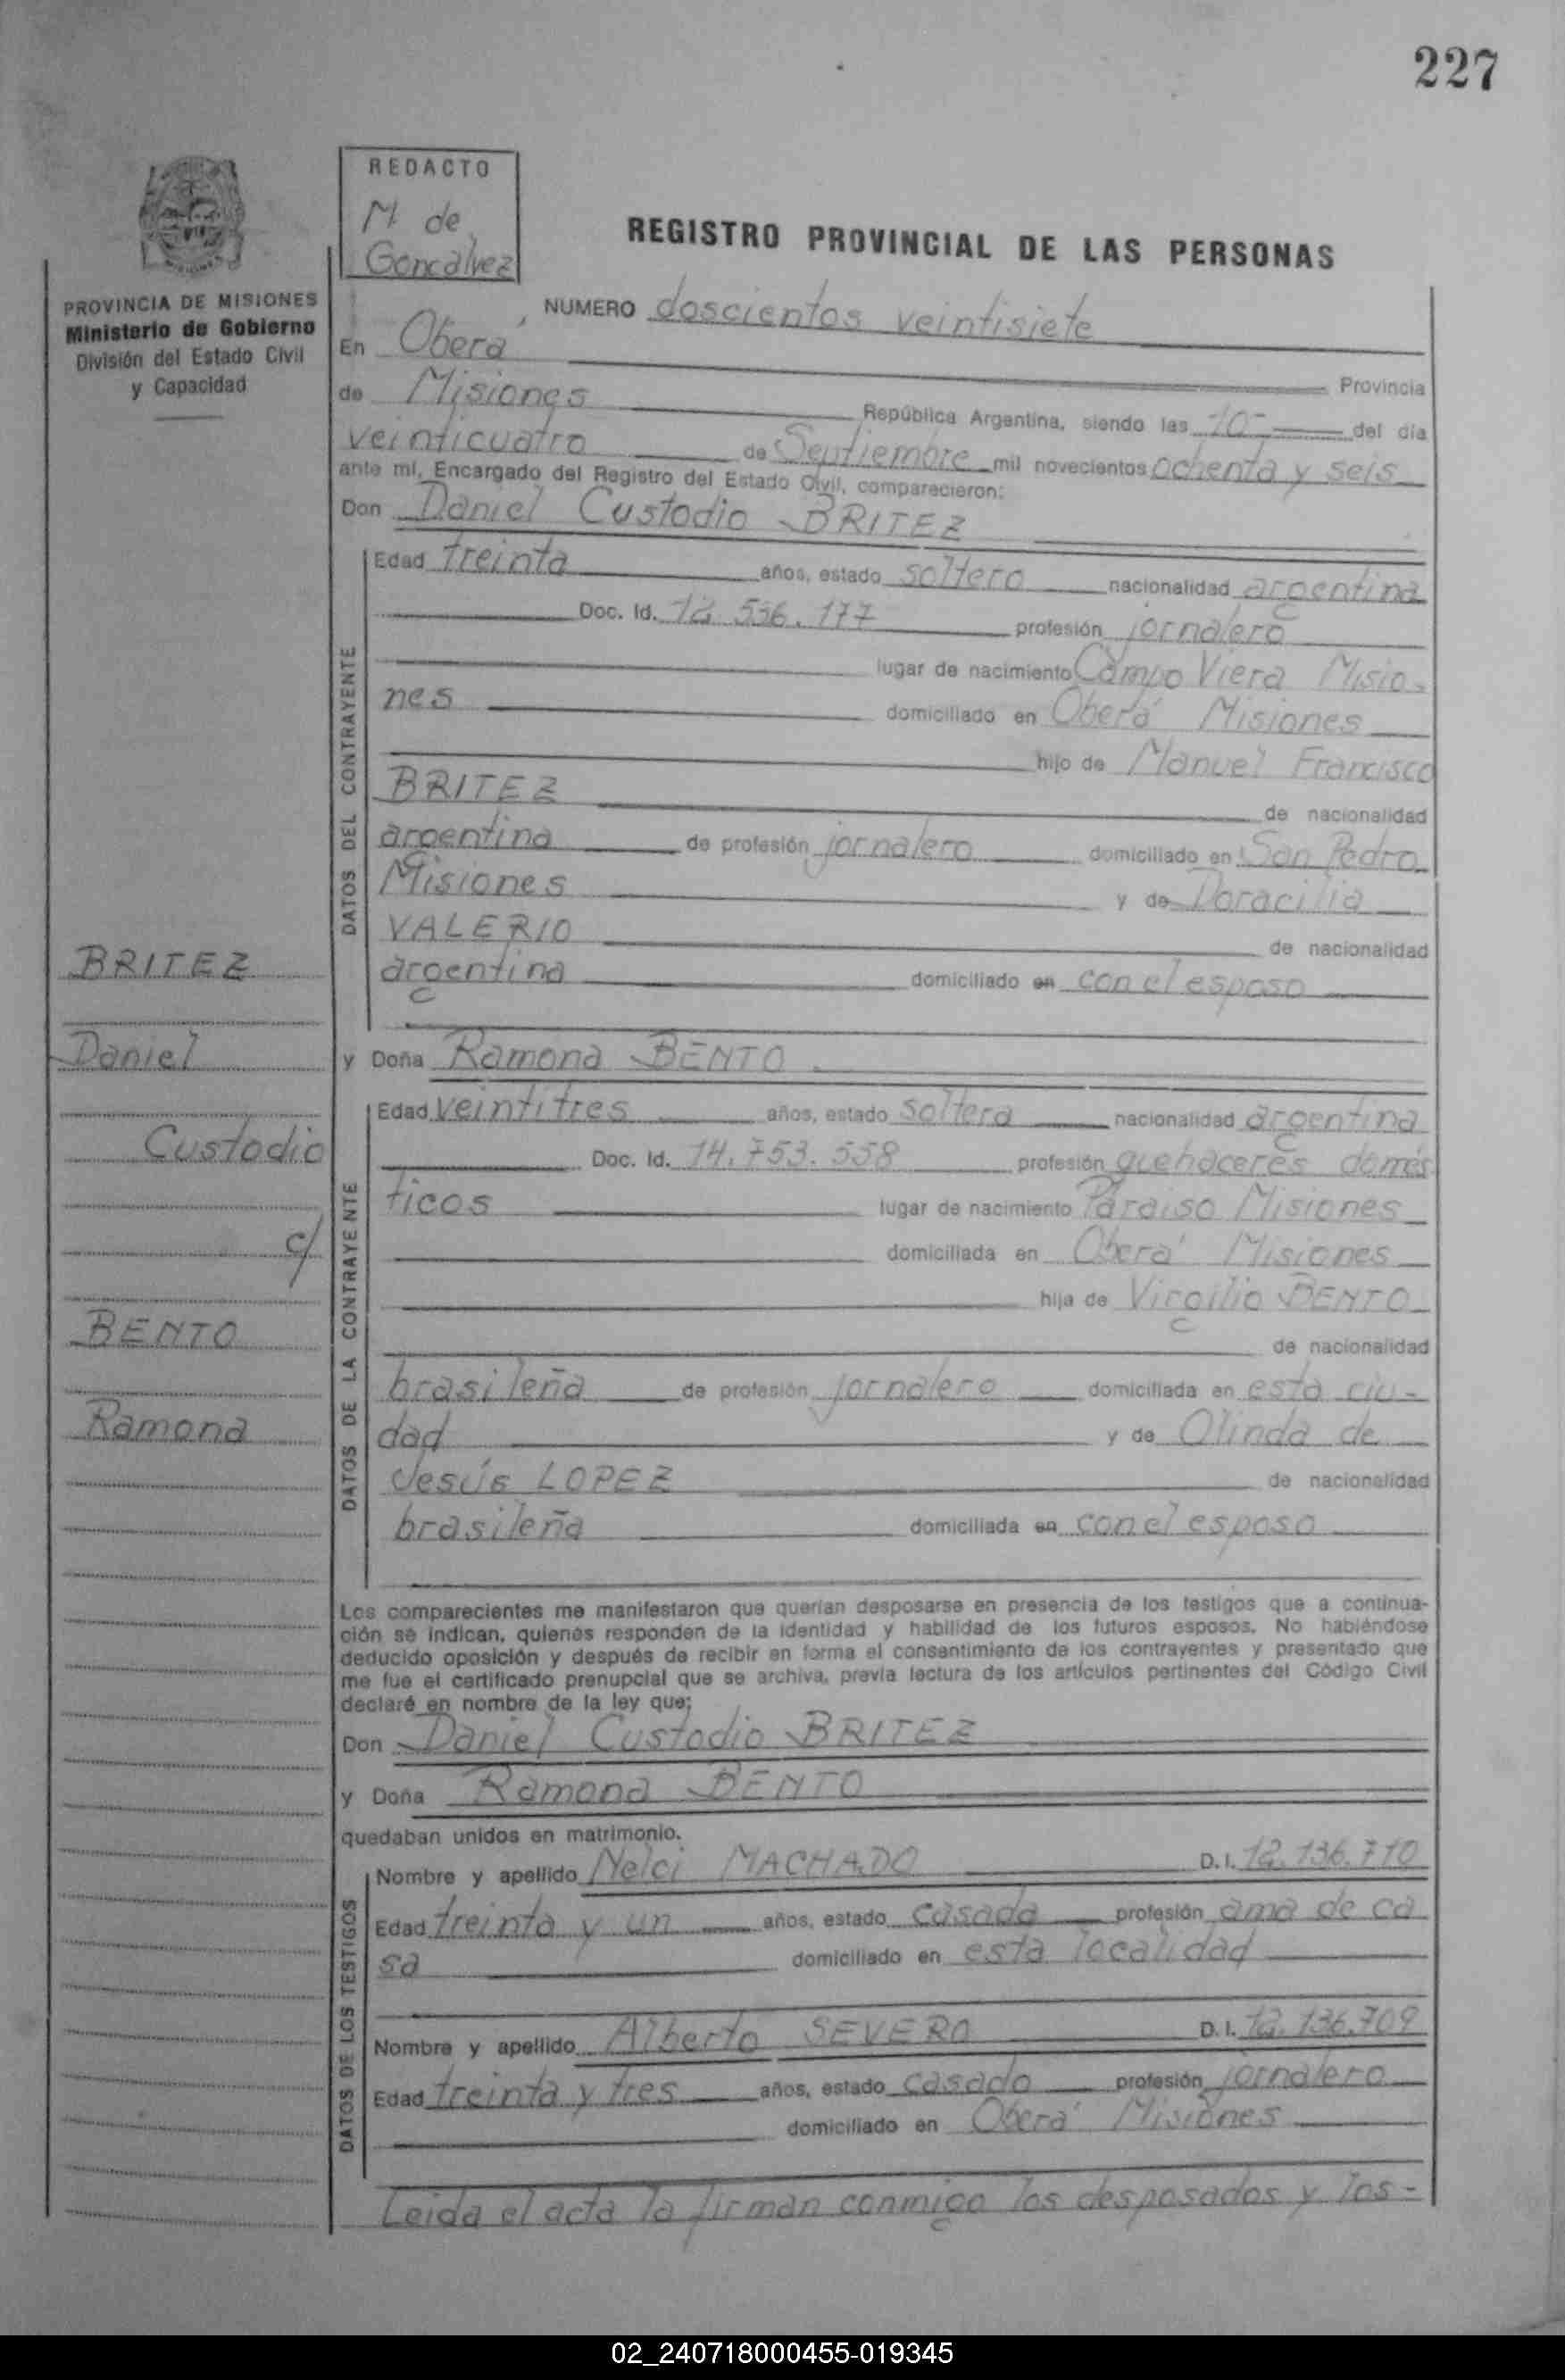 227
REDACTO
M de
Goncalvez
REGISTRO PROVINCIAL DE LAS PERSONAS
PROVINCIA DE MISIONES
Ministerio de Gobierno
División del Estado Civil
y Capacidad
NUMERO doscientos veintisiete
En Oberá Provincia
de Misiones República Argentina, siendo las 10 del día
veinticuatro de Septiembre mil novecientos ochenta y seis
ante mí, Encargado del Registro del Estado Civil, comparecieron:
Don Daniel Custodio BRITEZ
DATOS DEL CONTRAYENTE
Edad treinta años, estado soltero nacionalidad argentina
Doc. Id. 12.556.177 profesión jornalero
lugar de nacimiento Campo Viera Misio-
nes domiciliado en Oberá Misiones
hijo de Manuel Francisco
BRITEZ de nacionalidad
argentina de profesión jornalero domiciliado en San Pedro
Misiones y de Doracilia
VALERIO de nacionalidad
argentina domiciliado en con el esposo
y Doña Ramona BENTO
DATOS DE LA CONTRAYENTE
Edad veintitres años, estado soltera nacionalidad argentina
Doc. Id. 14.753.558 profesión quehaceres domés
ticos lugar de nacimiento Paraiso Misiones
domiciliada en Oberá Misiones
hija de Virgilio BENTO
de nacionalidad
brasileña de profesión jornalero domiciliada en esta ciu-
dad y de Olinda de
Jesús LOPEZ de nacionalidad
brasileña domiciliada en con el esposo
BRITEZ
Daniel
Custodio
c/
BENTO
Ramona
Los comparecientes me manifestaron que querían desposarse en presencia de los testigos que a continua-
ción se indican, quienes responden de la identidad y habilidad de los futuros esposos. No habiéndose
deducido oposición y después de recibir en forma el consentimiento de los contrayentes y presentado que
me fue el certificado prenupcial que se archiva, previa lectura de los artículos pertinentes del Código Civil
declaré en nombre de la ley que:
Don Daniel Custodio BRITEZ
y Doña Ramona BENTO
quedaban unidos en matrimonio.
DATOS DE LOS TESTIGOS
Nombre y apellido Nelci MACHADO D.I. 12.136.710
Edad treinta y un años, estado casada profesión ama de ca
sa domiciliado en esta localidad
Nombre y apellido Alberto SEVERO D.I. 12.136.709
Edad treinta y tres años, estado casado profesión jornalero
domiciliado en Oberá Misiones
Leida el acta la firman conmigo los desposados y los-
02_240718000455-019345